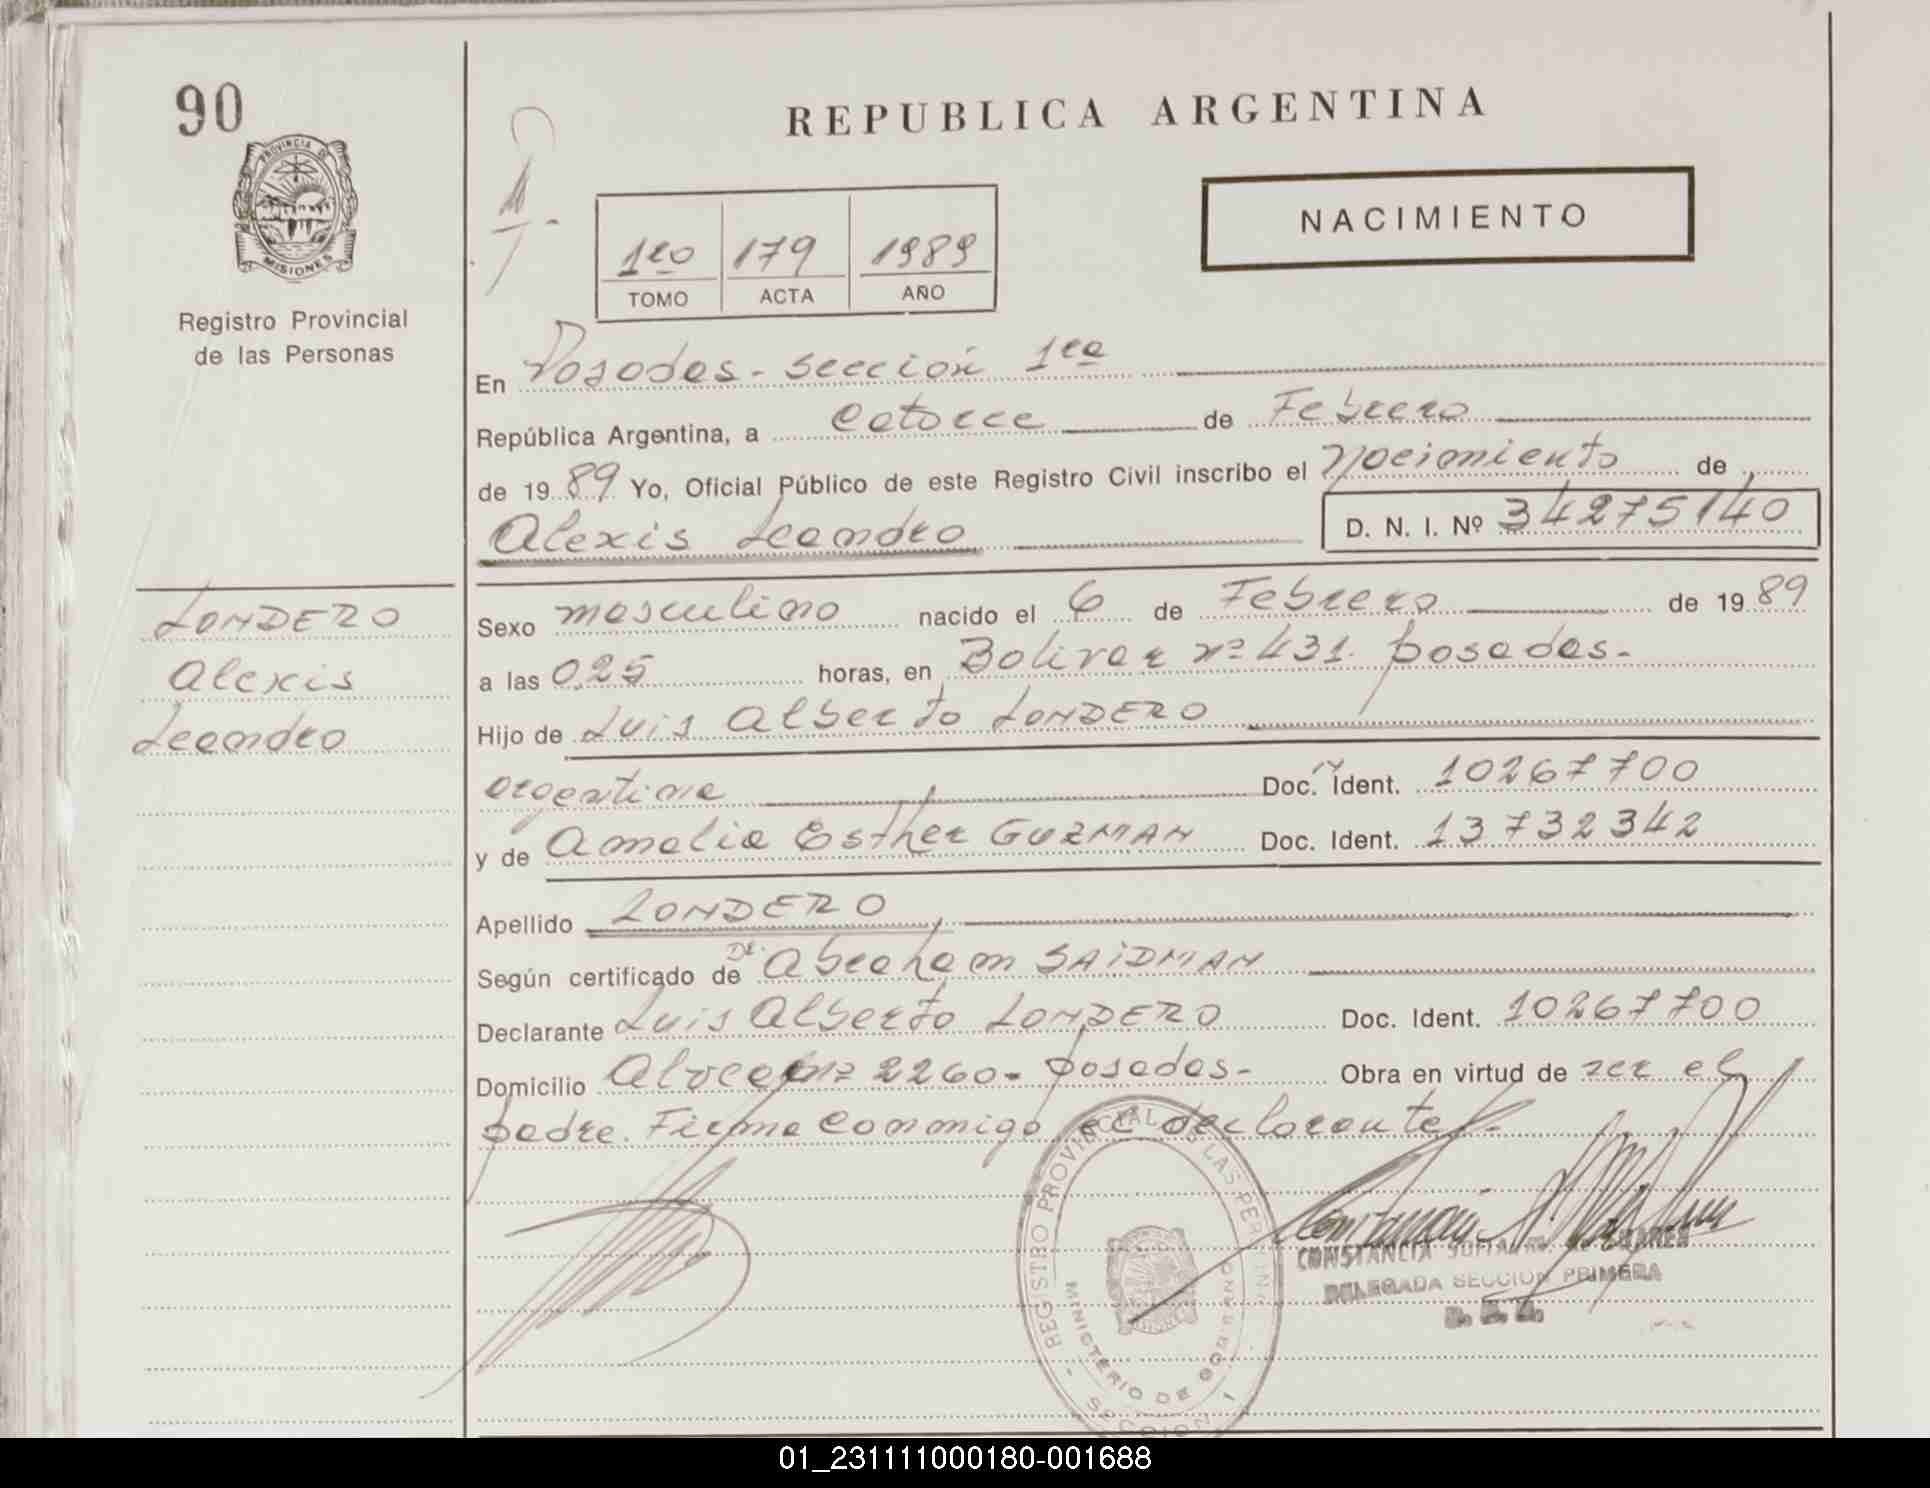 90
REPUBLICA ARGENTINA
PROVINCIA DE
MISIONES
Registro Provincial
de las Personas
NACIMIENTO
1ro 179 1989
TOMO ACTA AÑO
En Posadas - sección 1ra
República Argentina, a catorce de Febrero
de 1989 Yo, Oficial Público de este Registro Civil inscribo el nacimiento de
Alexis Leandro D. N. I. Nº 34275140
LONDERO
Alexis
Leandro
Sexo masculino nacido el 6 de Febrero de 1989
a las 0,25 horas, en Bolivar nº 431. posadas.-
Hijo de Luis Alberto LONDERO
argentina Doc. Ident. 10267700
y de Amalia Esther GUZMAN Doc. Ident. 13732342
Apellido LONDERO
Según certificado de Dr. Abraham SAIDMAN
Declarante Luis Alberto LONDERO Doc. Ident. 10267700
Domicilio 2260- posadas- Obra en virtud de ser el
padre. Firma conmigo el declarante.-
REGISTRO PROVINCIAL DE LAS PERSONAS
MINISTERIO DE GOBIERNO
SECCION 1
CONSTANCIA SOFIA
DELEGADA SECCION PRIMERA
01_231111000180-001688